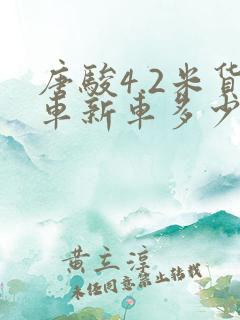 唐駿4.2米貨
車新車多少
黄立淳
未经同意禁止转载